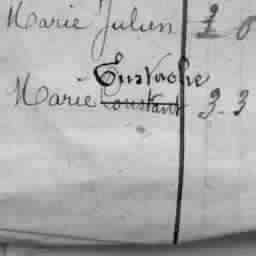 Marie Julien 2 0
Eustache
Marie Constant 3-3